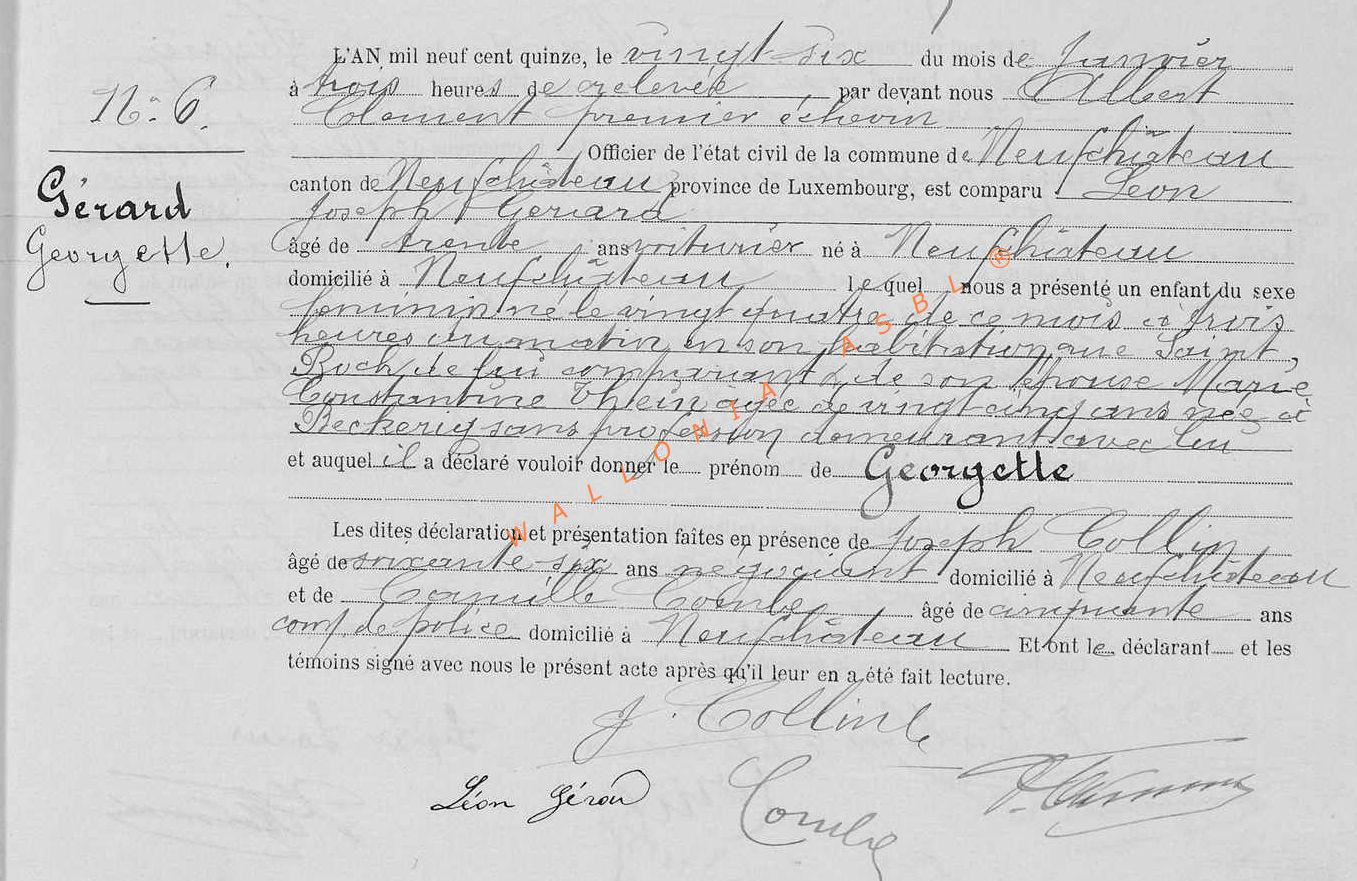 L'AN mil neuf cent quinze, le vingt-six du mois de Janvier
à trois heures de relevée, par devant nous Albert
Clement premier échevin
Officier de l'état civil de la commune de Neufchâteau
canton de Neufchâteau, province de Luxembourg, est comparu Léon
Joseph Gérard
âgé de trente ans voiturier né à Neufchâteau
domicilié à Neufchâteau lequel nous a présenté un enfant du sexe
feminin né le vingt quatre de ce mois à trois
heures du matin en son habitation, rue Saint,
Roch, de lui comparant & de son épouse Marie
Constantine Thein âgée de vingt cinq ans née à
Beckerig sans profession demeurant avec lui
et auquel il a déclaré vouloir donner le prénom de Georgette
Les dites déclaration et présentation faites en présence de Joseph Collin
âgé de soixante-six ans négociant domicilié à Neufchâteau
et de Camille Combe âgé de cinquante ans
com. de police domicilié à Neufchâteau Et ont le déclarant et les
témoins signé avec nous le présent acte après qu'il leur en a été fait lecture.
J. Collin
Léon Gérard
Combe
N° 6.
Gérard
Georgette.
WALLONIA ASBL ®